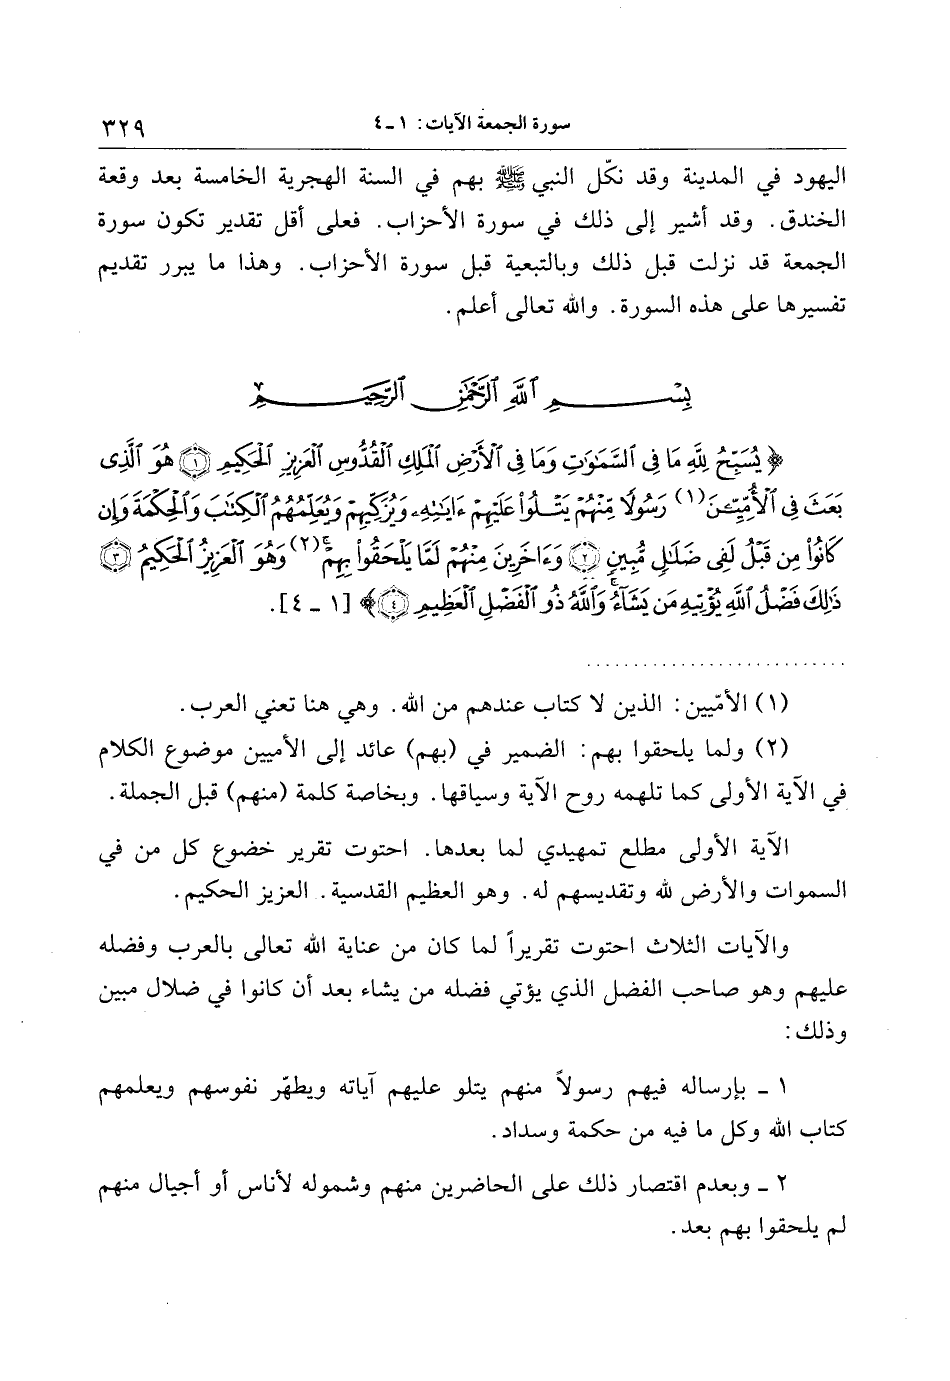 سورة الجمعة الآيات: ١ـ٤ ٣٢٩
اليهود في المدينة وقد نكّل النبي ﷺ بهم في السنة الهجرية الخامسة بعد وقعة
الخندق. وقد أشير إلى ذلك في سورة الأحزاب. فعلى أقل تقدير تكون سورة
الجمعة قد نزلت قبل ذلك وبالتبعية قبل سورة الأحزاب. وهذا ما يبرر تقديم
تفسيرها على هذه السورة. والله تعالى أعلم.
بِسْمِ ٱللَّهِ ٱلرَّحْمَٰنِ ٱلرَّحِيمِ
﴿ يُسَبِّحُ لِلَّهِ مَا فِى ٱلسَّمَٰوَٰتِ وَمَا فِى ٱلْأَرْضِ ٱلْمَلِكِ ٱلْقُدُّوسِ ٱلْعَزِيزِ ٱلْحَكِيمِ ١ هُوَ ٱلَّذِى
بَعَثَ فِى ٱلْأُمِّيِّـۧنَ (١) رَسُولًا مِّنْهُمْ يَتْـلُوا۟ عَلَيْهِمْ ءَايَٰتِهِۦ وَيُزَكِّيهِمْ وَيُعَلِّمُهُمُ ٱلْكِتَٰبَ وَٱلْحِكْمَةَ وَإِن
كَانُوا۟ مِن قَبْلُ لَفِى ضَلَٰلٍ مُّبِينٍ ٢ وَءَاخَرِينَ مِنْهُمْ لَمَّا يَلْحَقُوا۟ بِهِمْۚ (٢) وَهُوَ ٱلْعَزِيزُ ٱلْحَكِيمُ ٣
ذَٰلِكَ فَضْلُ ٱللَّهِ يُؤْتِيهِ مَن يَشَآءُۚ وَٱللَّهُ ذُو ٱلْفَضْلِ ٱلْعَظِيمِ ٤ ﴾ [١ ـ ٤].
(١) الأمّيين: الذين لا كتاب عندهم من الله. وهي هنا تعني العرب.
(٢) ولما يلحقوا بهم: الضمير في (بهم) عائد إلى الأميين موضوع الكلام
في الآية الأولى كما تلهمه روح الآية وسياقها. وبخاصة كلمة (منهم) قبل الجملة.
الآية الأولى مطلع تمهيدي لما بعدها. احتوت تقرير خضوع كل من في
السموات والأرض لله وتقديسهم له. وهو العظيم القدسية. العزيز الحكيم.
والآيات الثلاث احتوت تقريراً لما كان من عناية الله تعالى بالعرب وفضله
عليهم وهو صاحب الفضل الذي يؤتي فضله من يشاء بعد أن كانوا في ضلال مبين
وذلك:
١ ـ بإرساله فيهم رسولاً منهم يتلو عليهم آياته ويطهّر نفوسهم ويعلمهم
كتاب الله وكل ما فيه من حكمة وسداد.
٢ ـ وبعدم اقتصار ذلك على الحاضرين منهم وشموله لأناس أو أجيال منهم
لم يلحقوا بهم بعد.